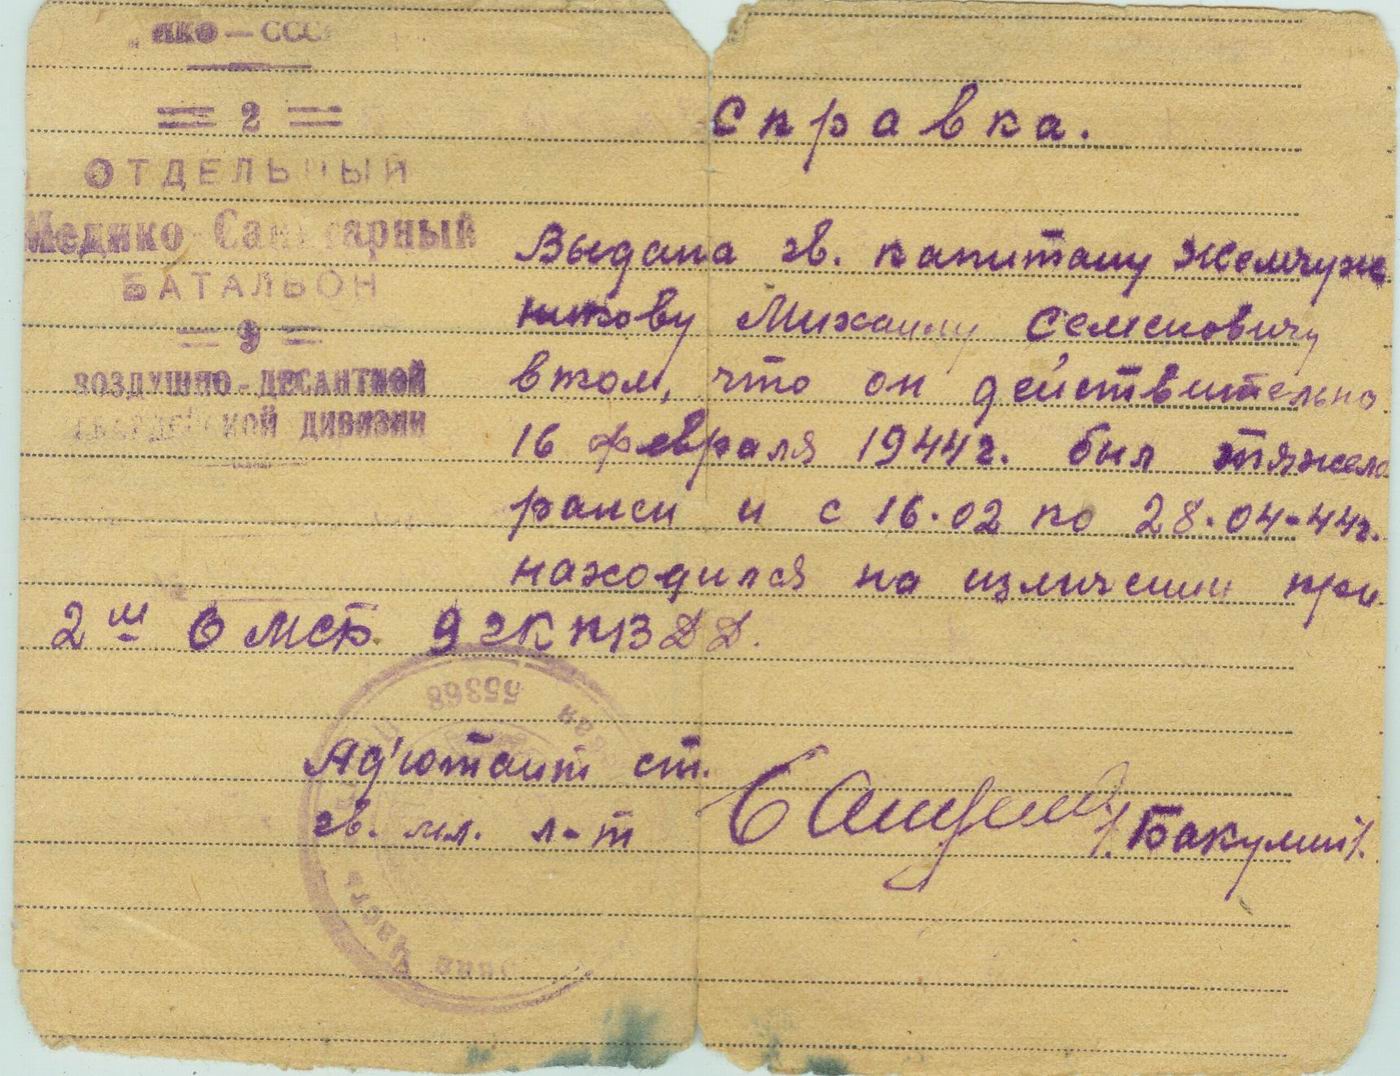 НКО — СССР
2
ОТДЕЛЬНЫЙ
Медико-Санитарный
БАТАЛЬОН
9
ВОЗДУШНО-ДЕСАНТНОЙ
ГВАРДЕЙСКОЙ ДИВИЗИИ
Справка.
Выдана гв. капитану Жемчуж
никову Михаилу Семеновичу
втом, что он действительно
16 февраля 1944г. был тяжело
ранен и с 16.02 по 28.04-44г.
находился на изличении при
2м ОМСБ 9 гКПВДД.
55368
Ад'ютант ст.
гв. мл. л-т
/Бакулин/.
часть